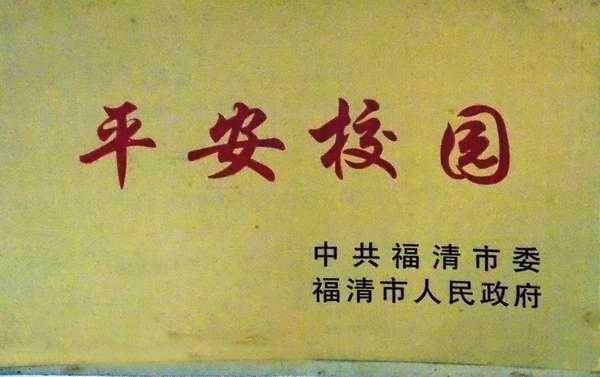 平安校园
中共福清市委
福清市人民政府